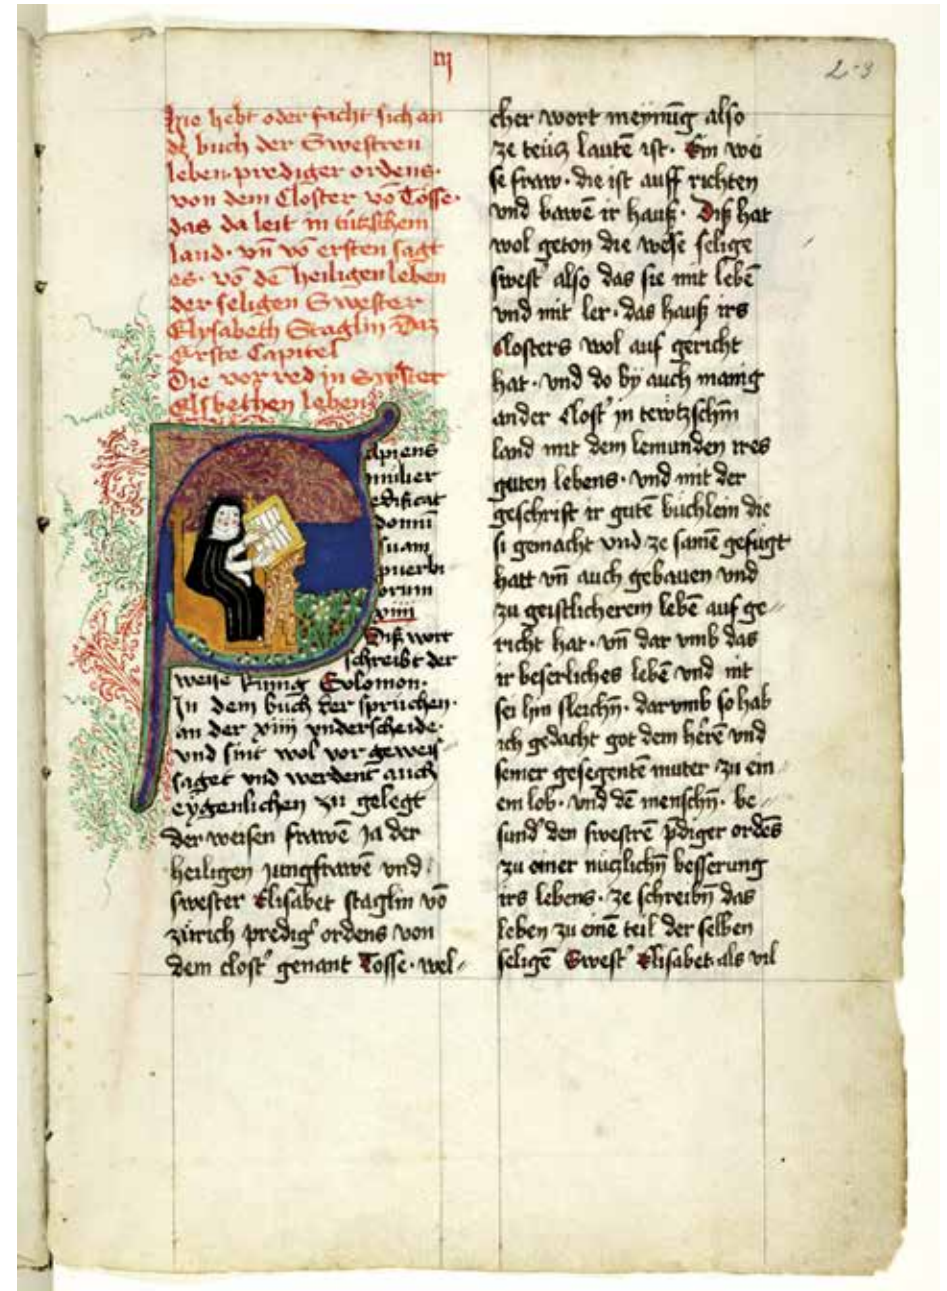 iij
2-3
Hie hebt oder facht sich an
dz buch der Swestren
leben prediger ordens·
von dem Closter vō Tösse·
das da leit in tützschem
land· vn̄ vō ersten sagt
es· vō dē heiligen leben
der seligen Swester
Elysabeth Staglin Daz
Erste Capitel
Die vor red in Swester
Elsbethen leben
Sapiens
mulier
edificat
domū
suam
puerbi
orum
xiiii
Diß wort
schreibt der
weise kunig Solomon·
In dem buch der spruchen·
an der xiiii vnderscheide·
vnd sint wol vor geweis
saget vnd werdent auch
eÿgenlichen zu gelegt
der weisen frawē ja der
heiligen jungfrawē vnd
swester Elisabet staglin vō
zürich predigʼ ordens von
dem clostʼ genant Tösse· wel⸗
cher wort meÿnūg also
ze teüsch lautē ist· Ein wei
se fraw· die ist auff richten
vnd bawē ir hauß· Diß hat
wol geton die weise selige
swestʼ also das sie mit lebē
vnd mit ler· das hauß irs
Closters wol auf gericht
hat· vnd do bÿ auch manig
ander Clostʼ in tewtzschm̄
land mit dem lemunden ires
guten lebens· vnd mit der
geschrift ir gutē büchlein die
si gemacht vnd ze samē gefügt
hatt vn̄ auch gebauen vnd
zu geistlicherem lebē auf ge⸗
richt hat· vn̄ dar vmb das
ir beserliches lebē vnd nit
sei hin sleichn̄· darvmb so hab
ich gedacht got dem hērē vnd
seiner gesegentē muter zu ein⸗
em lob· vnd dē menschn̄· be⸗
sundʼ den swestrē p̄diger ordēs
zu einer nüczlichn̄ besserung
irs lebens· ze schreibn̄ das
leben zu einē teil der selben
seligē Swestʼ Elisabet· als vil